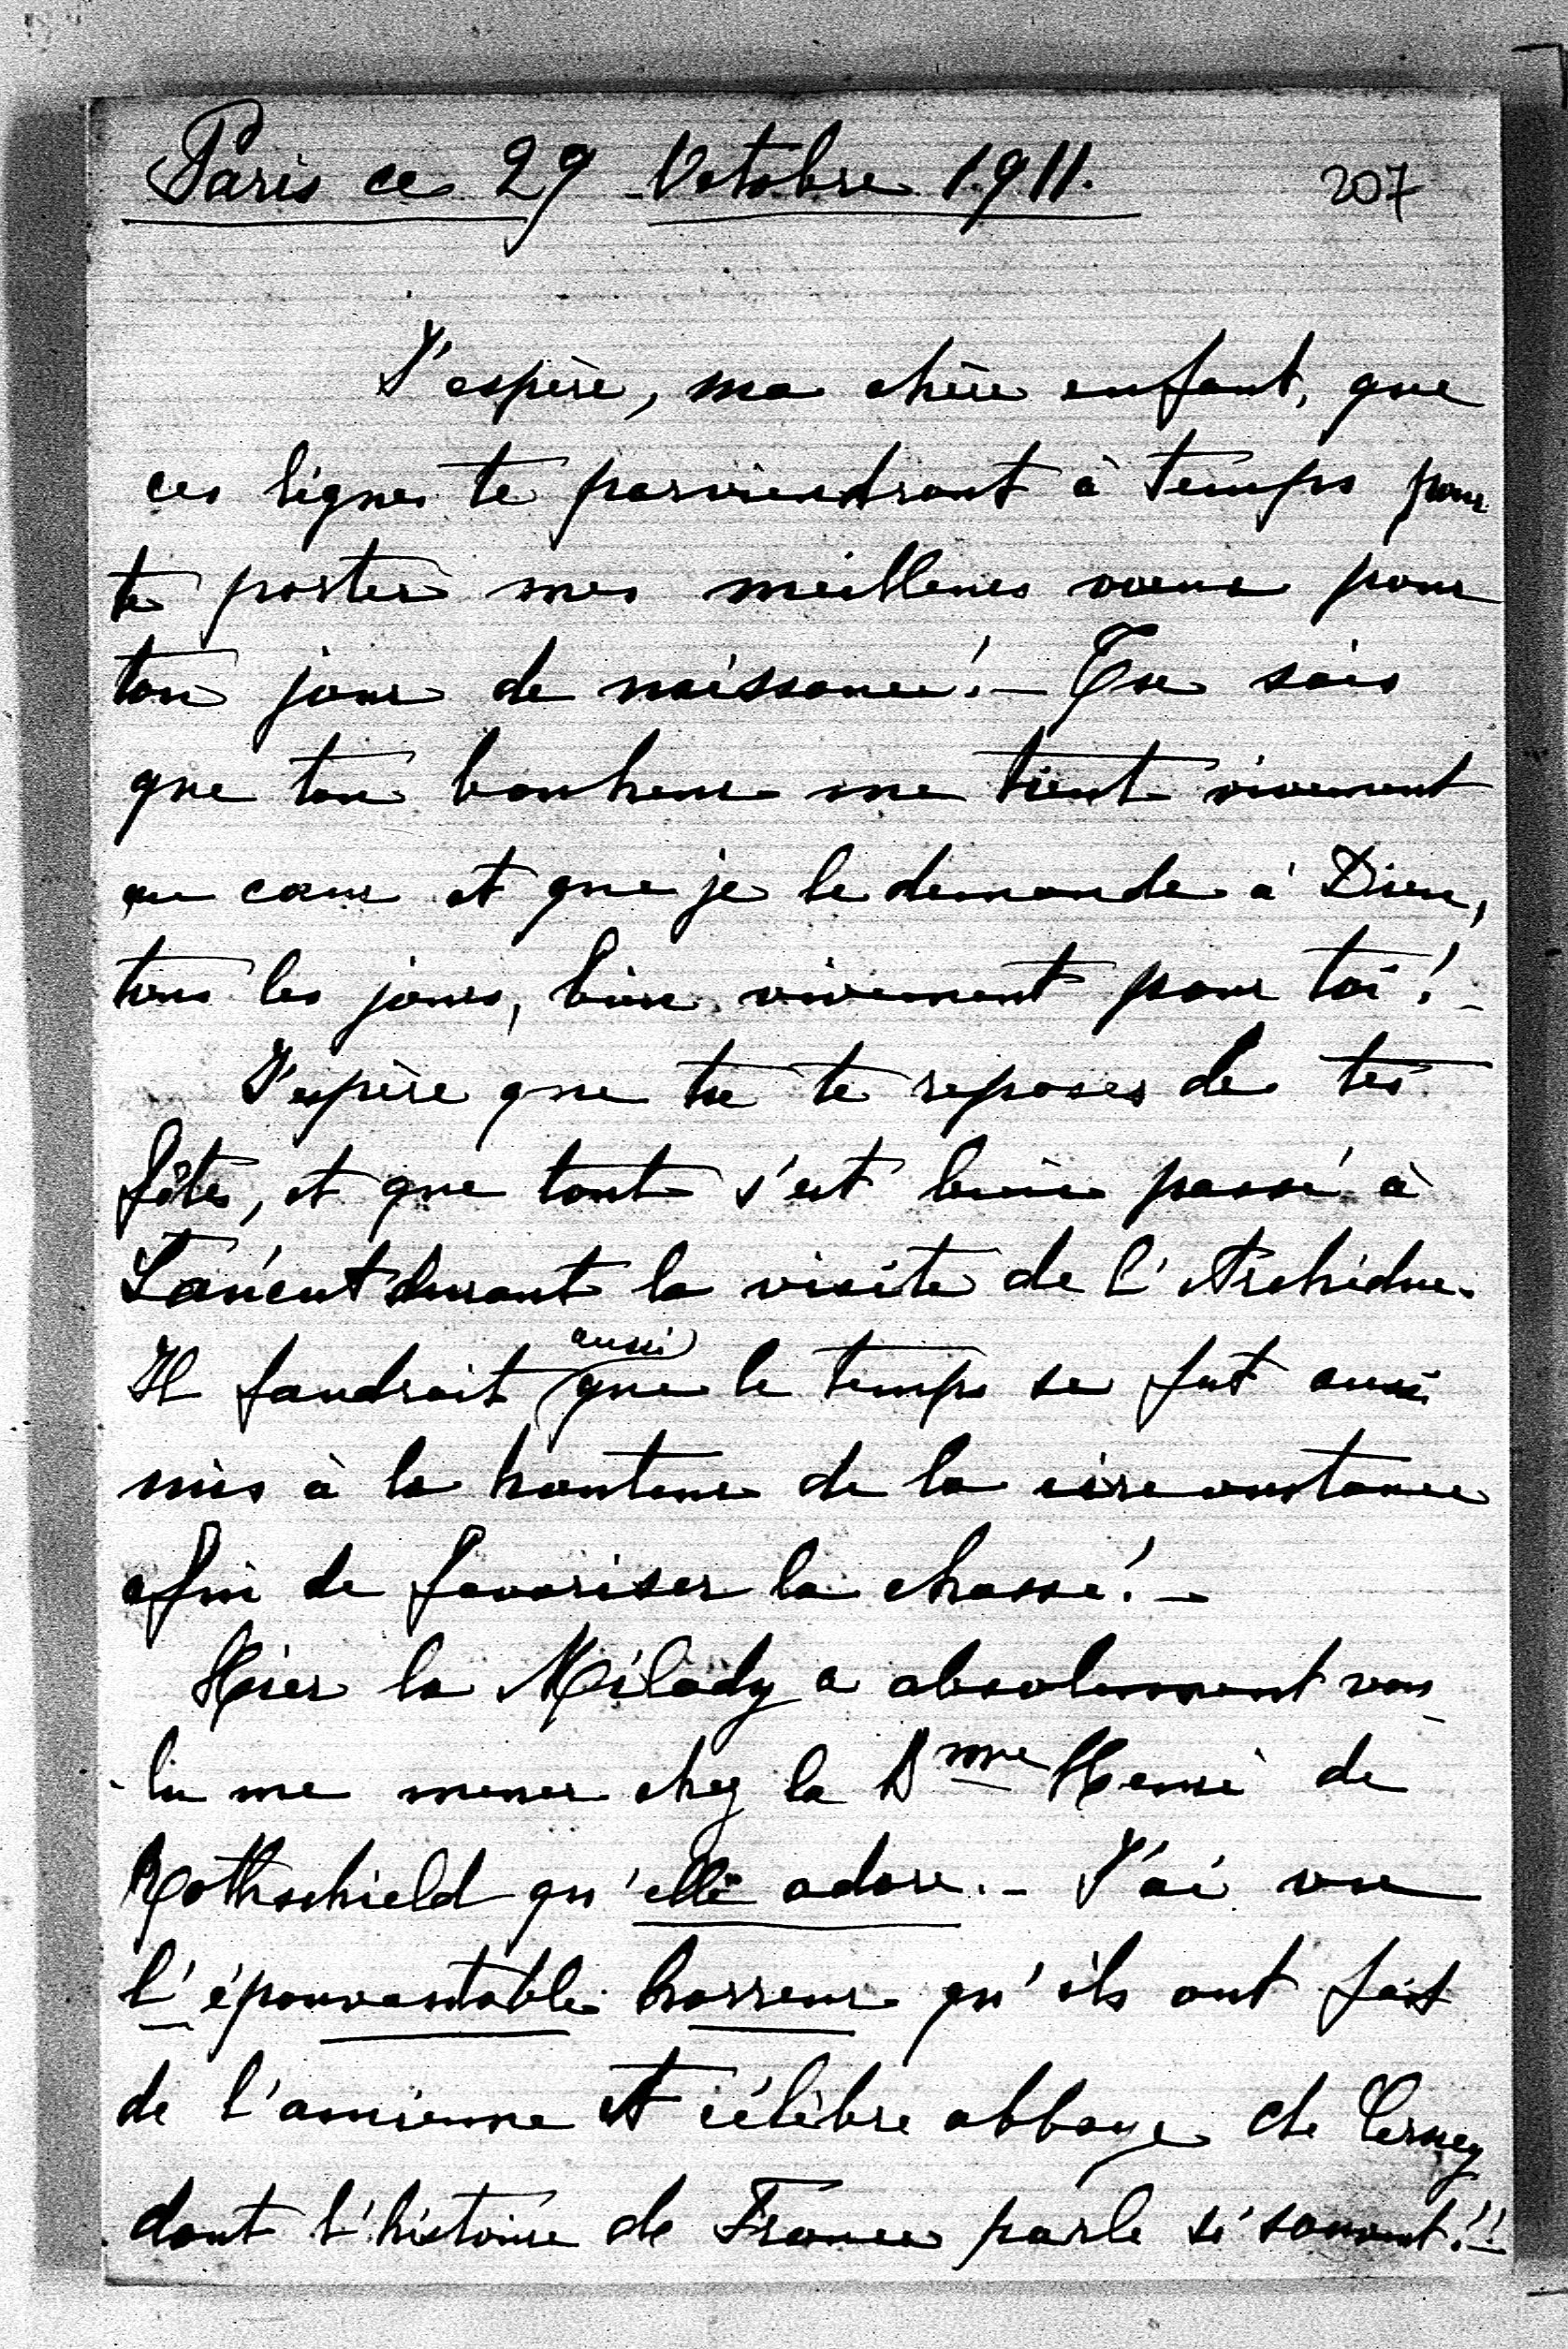 Paris ce 29 Octobre 1911.
207
J'espère, ma chère enfant, que
ces lignes te parviendront à temps pour
te porter mes meilleurs vœux pour
ton jour de naissance! – Tu sais
que ton bonheur me tient vivement
au cœur et que je le demande à Dieu,
tous les jours, bien vivement pour toi! –
J'espère que tu te reposes de tes
fêtes, et que tout s'est bien passé à
Łańcut durant la visite de l'Archiduc.
Il faudrait aussi que le temps se fut aussi
mis à la hauteur de la circonstance
afin de favoriser la chasse! –
Hier la Milady a absolument vou-
-lu me mener chez la Bnne Henri de
Rothschild qu'elle adore. – J'ai vu
l'épouvantable horreur qu'ils ont fait
de l'ancienne et célèbre abbaye de Cernay
dont l'histoire de France parle si souvent!! –